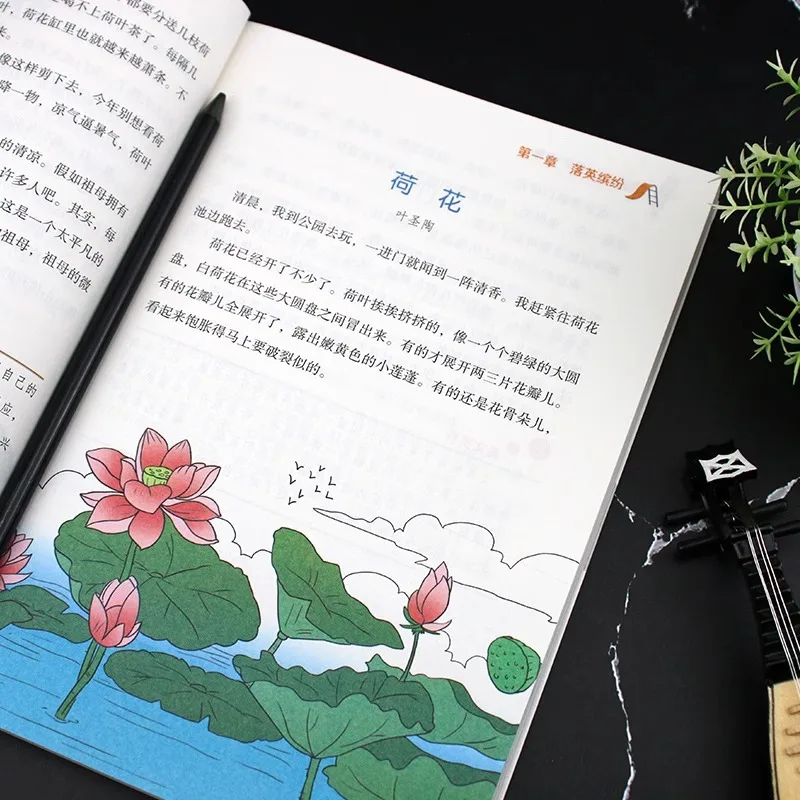 都要分送几枝荷
喝不上荷叶茶了。每隔几
叶，荷花缸里也就越来越萧条。不
来。
像这样剪下去，今年别想看荷
降一物，凉气逼暑气，荷叶
的清凉。假如祖母拥有
许多人吧。其实，每
这是一个太平凡的
祖母，祖母的微
自己的
应，
兴
第一章 落英缤纷
荷花
叶圣陶
清晨，我到公园去玩，一进门就闻到一阵清香。我赶紧往荷花
池边跑去。
荷花已经开了不少了。荷叶挨挨挤挤的，像一个个碧绿的大圆
盘，白荷花在这些大圆盘之间冒出来。有的才展开两三片花瓣儿。
有的花瓣儿全展开了，露出嫩黄色的小莲蓬。有的还是花骨朵儿，
看起来饱胀得马上要破裂似的。